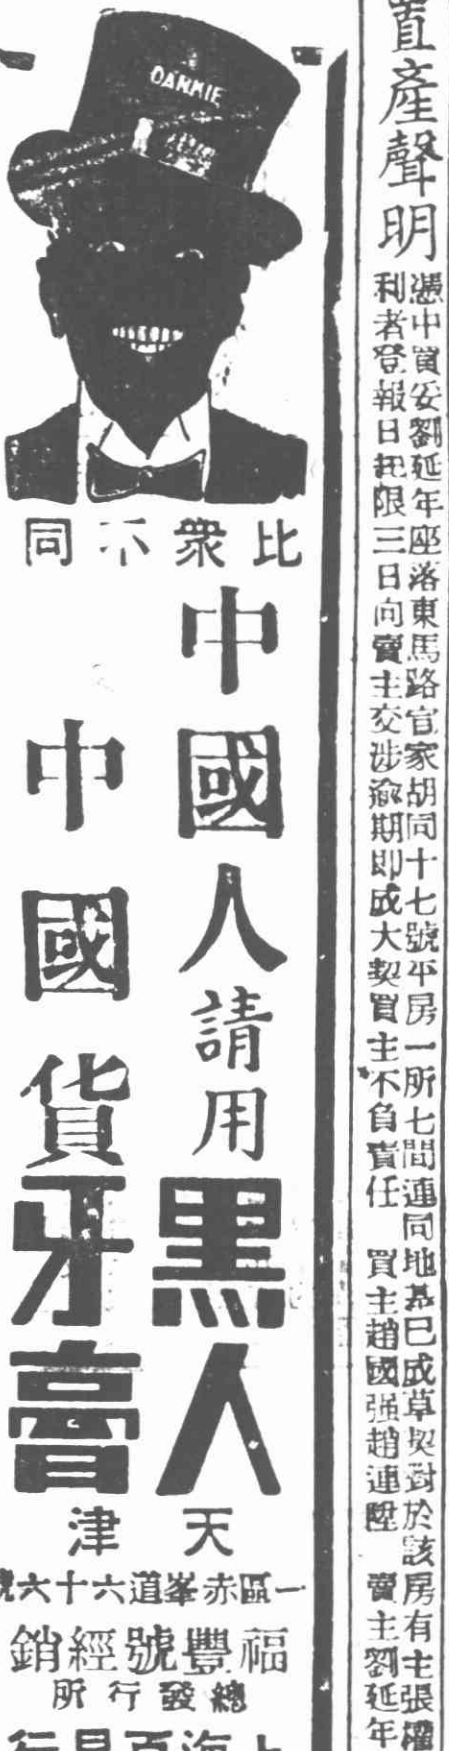 置產聲明
憑中買妥劉延年座落東馬路官家胡同十七號平房一所七間連同地基已成草契對於該房有主張權
利者登報日起限三日向賣主交涉逾期即成大契買主不負責任 買主趙國强趙連陞 賣主劉延年
DARKIE
比衆不同
中國人請用黑人
中國貨牙膏
天津
一區赤峯道六十六號
福豐號經銷
總發行所
上海